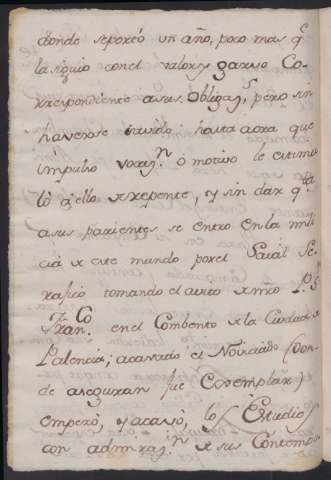 donde seporto un año, poco mas q.e
la siguio con el valor, y garvo Co-
rrespondiente a sus Obligaz.s, pero sin
haverse savido hasta aora que
impulso voraz.n ô motivo le estimu
lô â ello de repente, y sin dar q.ta
a sus parientes se entro en la mili
cia de este mundo por el Saial Se-
rafico tomando el avito de nr̃o P.S.
Fran.co en el Combento de la Ciudad de
Palencia; acavado el Noviciado (Don-
de aseguran fue Exemplar)
empezó, y acavó, los Estudios
con admiraz.n de sus Contempo